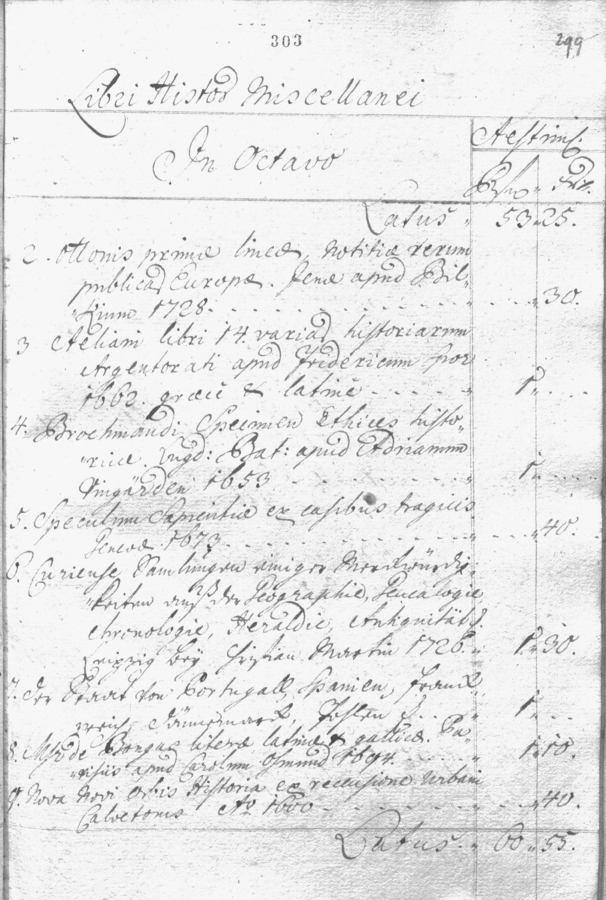 303
299
Libri Histor Miscellanei
In Octavo
Aestim.
Latus 53 25.
2. Ottonis primæ lineæ notitiæ rerum
publicar Europæ. Jenæ apud Biel-
kium 1728. 30.
3 Aeliani libri 14 variar historiarum
Argentorati apud Fridericum Spor
1662. græce & latine 1
4. Brochmandi Specimen Ethices histo-
ricæ Lugd: Bat: apud Adrianum
Vingärden 1653 1
5. Speculum Sapientiæ ex casibus tragicis
Genevæ 1673 40.
6. Curieuse Samlungen einiger Merckwürdig-
keiten auß der Geographie, Genealogie
Chronologie, Heraldic, Antiquität
Leipzig bey Christian Martin 1726. 1 30.
7. Der Staat von Portugall, Spanien, Franck-
reich, Dännemarck, 1
8. Msr de Bongas literæ latinæ & gallicæ. Pa-
risiis apud Carolum Osmund 1694. 1 10.
9. Nova Novi Orbis Historia ex recensione Urbani
Calvetonis Aō 1600 40.
Latus. 60 55.